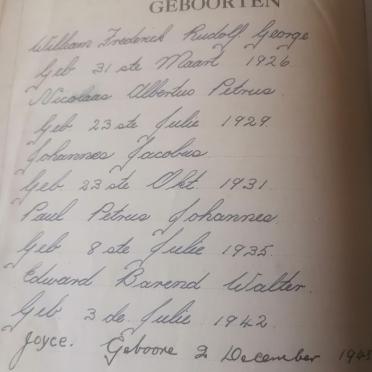 GEBOORTEN
William Frederick Rudolf George
Geb 31 ste Maart 1926
Nicolaas Albertus Petrus
Geb 23 ste Julie 1929
Johannes Jacobus
Geb 23 ste Okt 1931
Paul Petrus Johannes
Geb 8 ste Julie 1935
Edward Barend Walter.
Geb 3 de Julie 1942
Joyce. Geboore 2 December